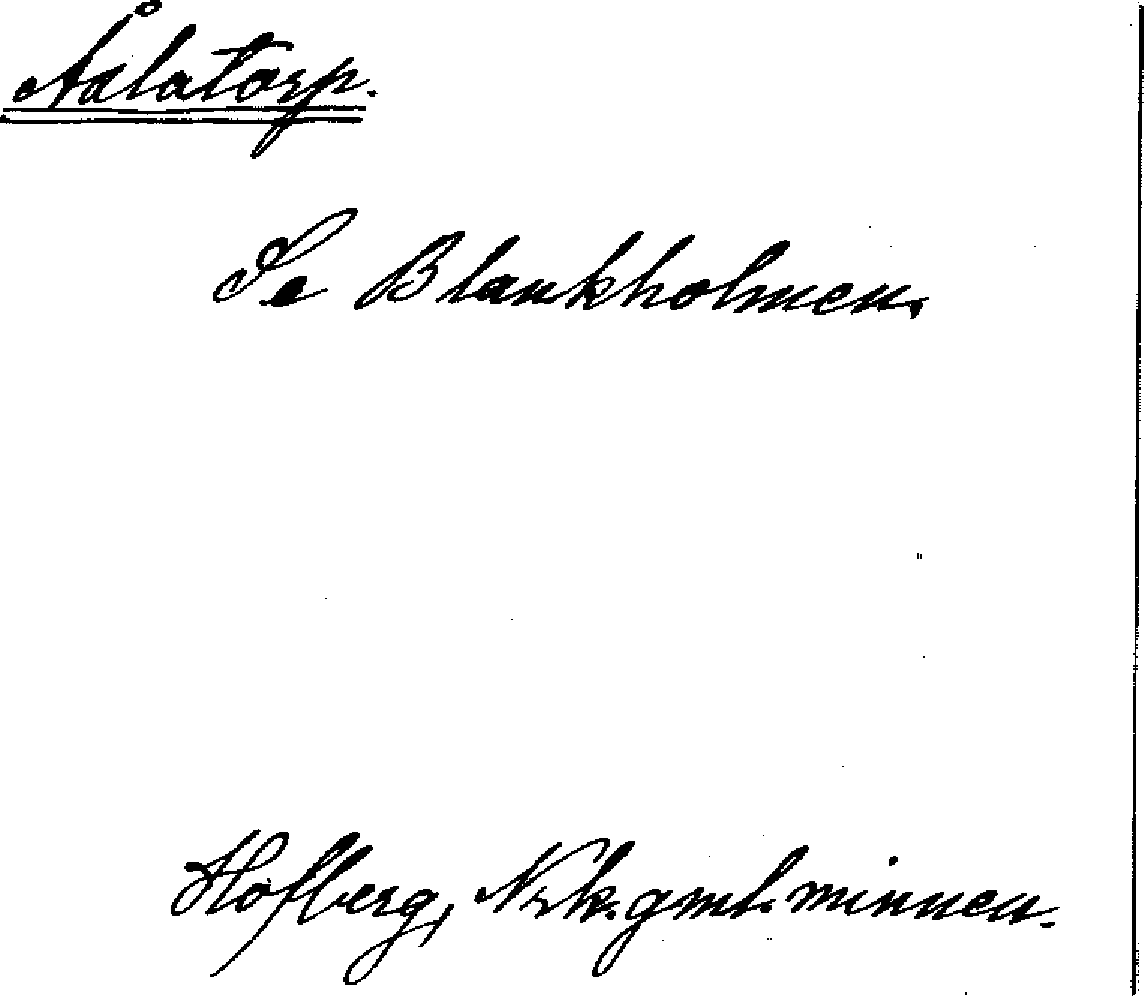 Ålatorp.
Se Blankholmen.
Hofberg, Nrk. gml. minnen.